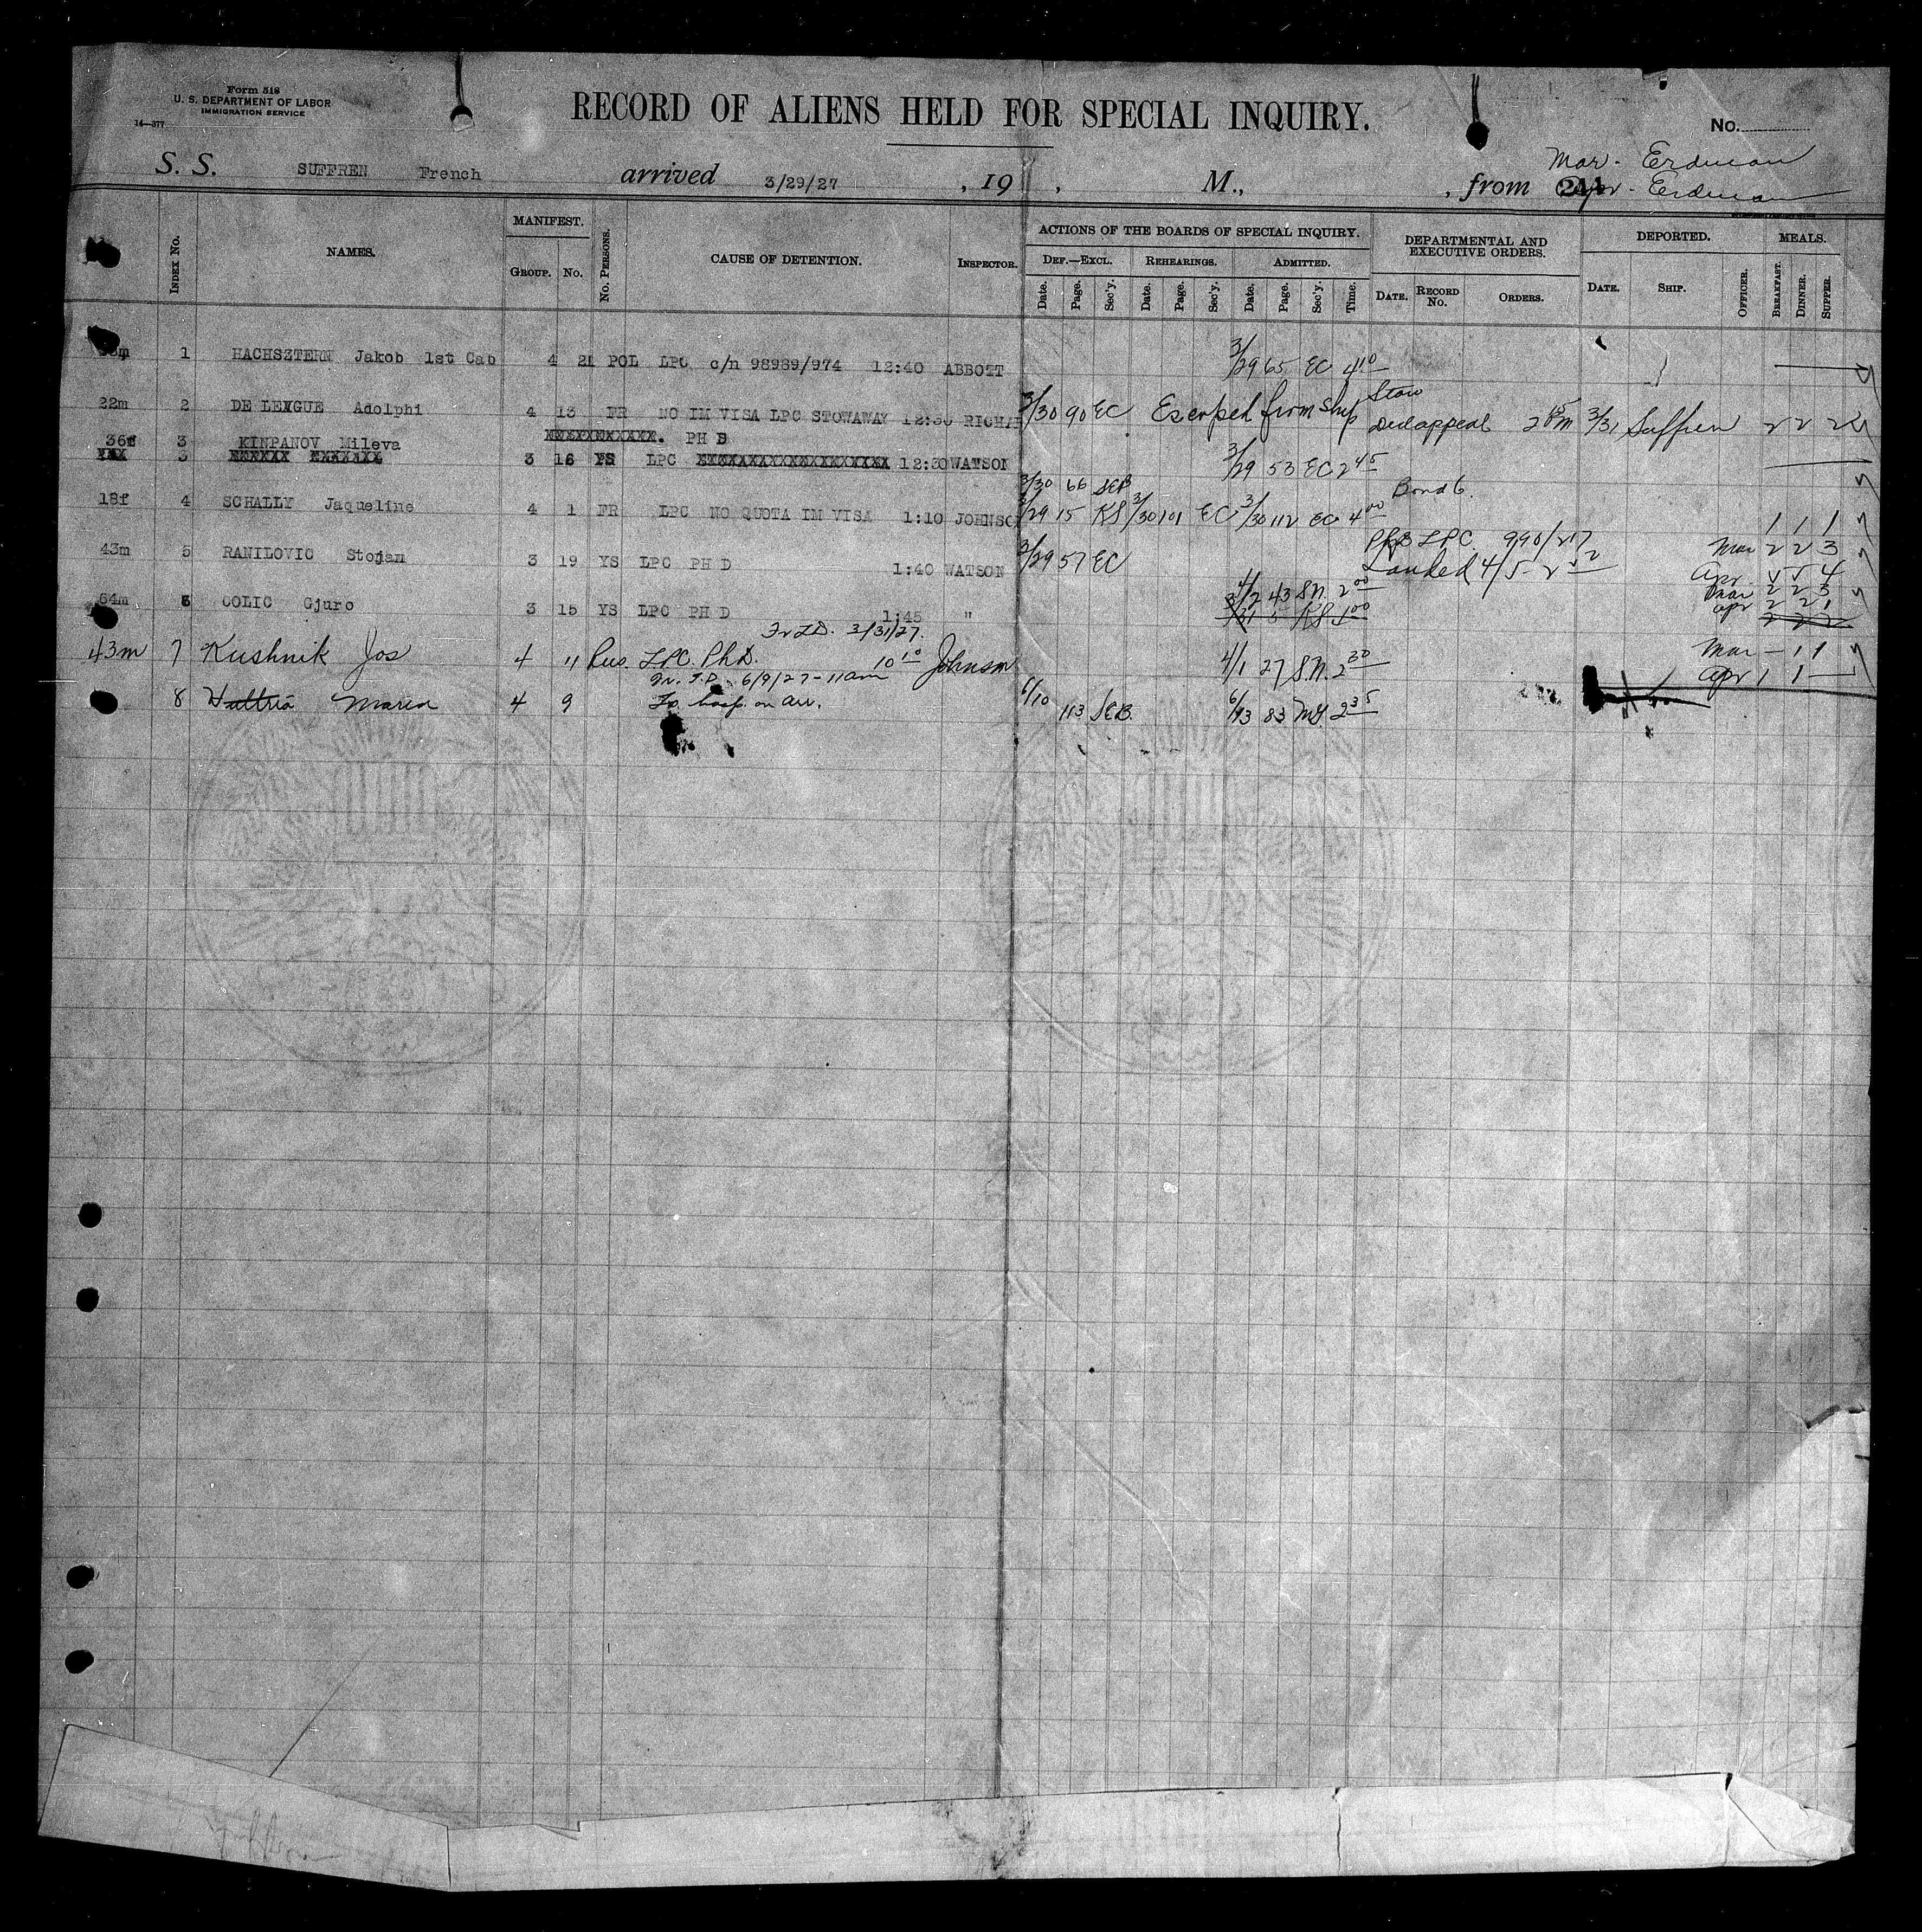 Form 518
U. S. DEPARTMENT OF LABOR
IMMIGRATION SERVICE
14—377
RECORD OF ALIENS HELD FOR SPECIAL INQUIRY.
No.
S. S. SUFFREN French arrived 3/29/27, 19 , M., , from
Mar. - Erdman
Apr. - Erdman
INDEX NO. NAMES. MANIFEST. GROUP. NO. NO. PERSONS. CAUSE OF DETENTION. INSPECTOR.
ACTIONS OF THE BOARDS OF SPECIAL INQUIRY.
DEF.—EXCL. REHEARINGS. ADMITTED.
Date. Page. Sec'y. Date. Page. Sec'y. Date. Page. Sec'y. Time.
DEPARTMENTAL AND EXECUTIVE ORDERS.
DATE. RECORD NO. ORDERS.
DEPORTED.
DATE. SHIP. OFFICER.
MEALS.
BREAKFAST. DINNER. SUPPER.
1 HACHSZTERN Jakob 1st Cab 4 21 POL LPC c/n 98989/974 12:40 ABBOTT 3/29 65 EC 4 10
22m 2 DE LENGUE Adolphi 4 13 FR NO IM VISA LPC STOWAWAY 12:30 RICHA 3/30 90 EC Escaped from Ship Stow appeal 3/31 Suffren 2 2 2
36f 3 KINPANOV Mileva PH D
3 16 YS LPC 12:30 WATSON 3/29 53 EC 2 45
3/30 66 SEB
18f 4 SCHALLY Jaqueline 4 1 FR LPC NO QUOTA IM VISA 1:10 JOHNSO 3/29 15 KS 3/30 101 EC 3/30 112 EC 4 00 Bond 6. 1 1 1
43m 5 RANILOVIC Stojan 3 19 YS LPC PH D 1:40 WATSON 3/29 57 EC LPC 990/217 Mar 2 2 3
Landed 4/5 Apr 5 5 4
4/2 43 S.N. 2 00 Mar 2 2 3
64m 6 COLIC Gjuro 3 15 YS LPC PH D 1:45 " Apr 2 2 1
Tr T.D. 3/31/27.
43m 7 Kushnik Jos 4 11 Rus. LPC. Ph D. 10 10 Johnson 4/1 27 S.N. 2 30 Mar — 1 1
Tr. T.D. 6/9/27 - 11 am Apr 1 1 —
8 Maria 4 9 To hosp. on arr. 6/10 113 SEB. 6/13 83 2 35